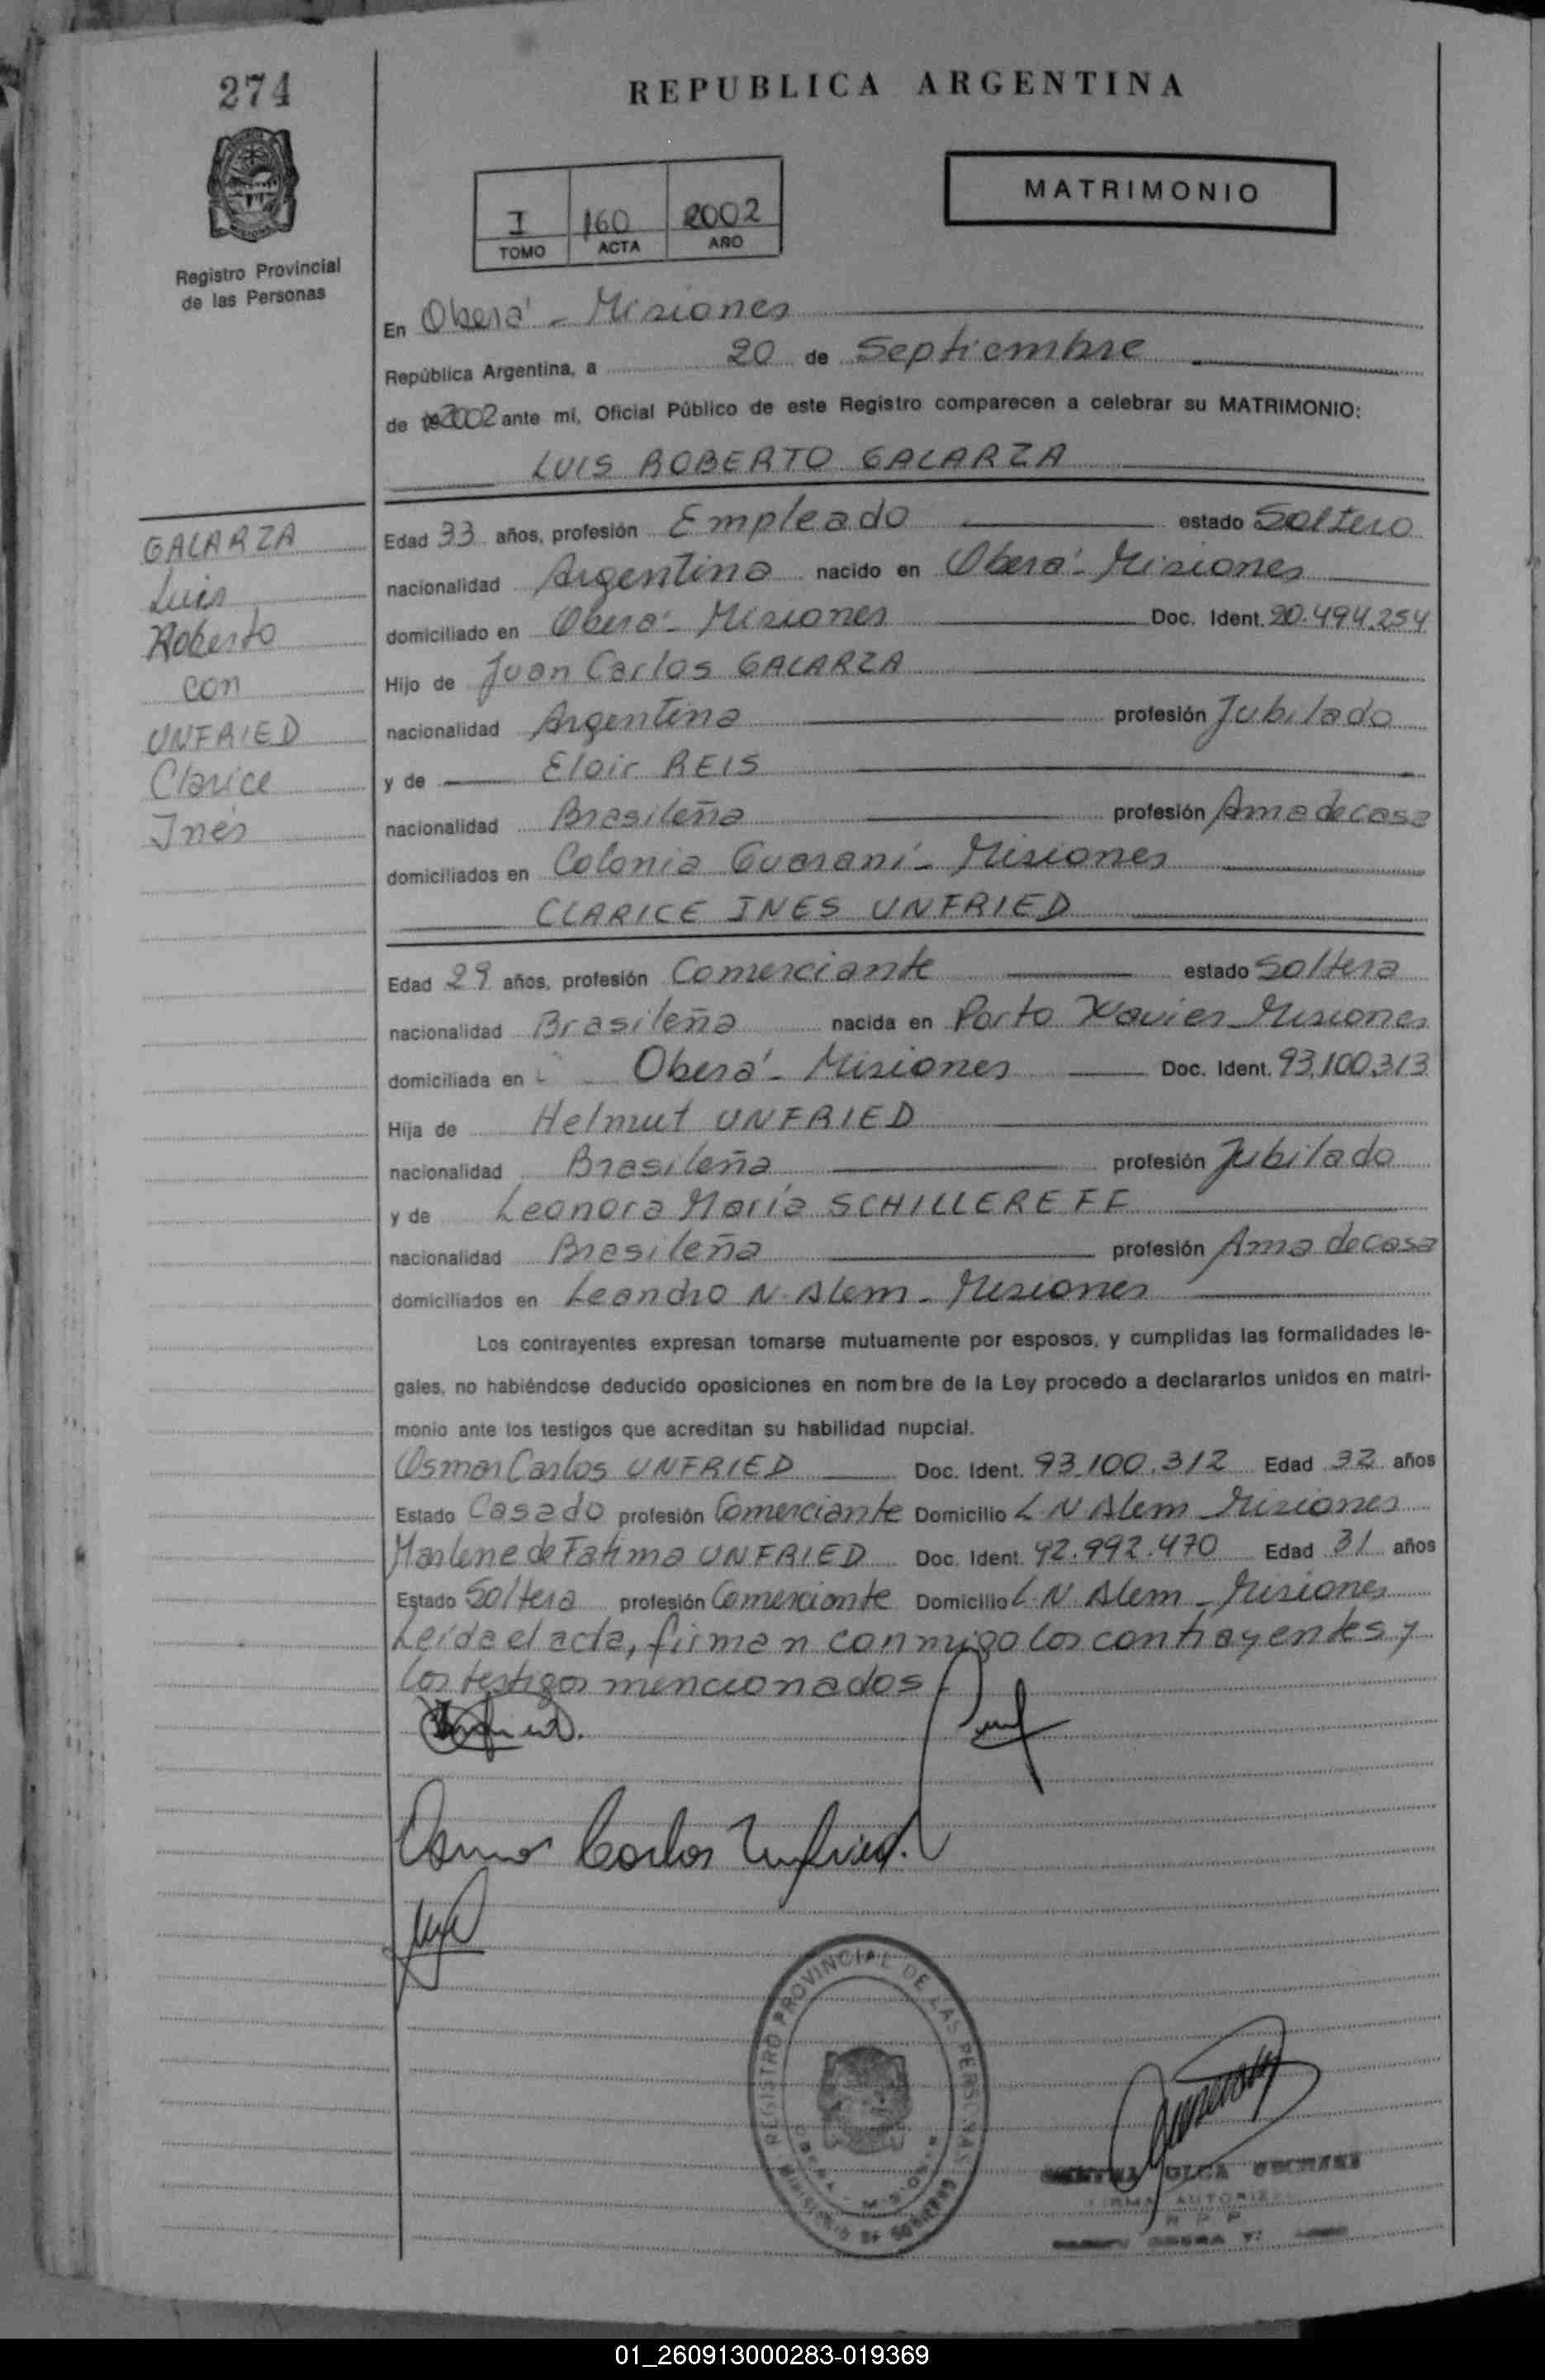 274
REPUBLICA ARGENTINA
MATRIMONIO
I 160 2002
TOMO ACTA AÑO
Registro Provincial
de las Personas
En Oberá - Misiones
República Argentina, a 20 de Septiembre
de 2002 ante mí, Oficial Público de este Registro comparecen a celebrar su MATRIMONIO:
LUIS ROBERTO GALARZA
GALARZA
Luis
Roberto
con
UNFRIED
Clarice
Inés
Edad 33 años, profesión Empleado estado Soltero
nacionalidad Argentina nacido en Oberá - Misiones
domiciliado en Oberá - Misiones Doc. Ident. 20.494.254
Hijo de Juan Carlos GALARZA
nacionalidad Argentina profesión Jubilado
y de Eloir REIS
nacionalidad Brasileña profesión Ama de casa
domiciliados en Colonia Guaraní - Misiones
CLARICE INES UNFRIED
Edad 29 años, profesión Comerciante estado Soltera
nacionalidad Brasileña nacida en Porto Xavier - Misiones
domiciliada en Oberá - Misiones Doc. Ident. 93.100.313
Hija de Helmut UNFRIED
nacionalidad Brasileña profesión Jubilado
y de Leonora María SCHILLEREFF
nacionalidad Brasileña profesión Ama de casa
domiciliados en Leandro N. Alem - Misiones
Los contrayentes expresan tomarse mutuamente por esposos, y cumplidas las formalidades le-
gales, no habiéndose deducido oposiciones en nombre de la Ley procedo a declararlos unidos en matri-
monio ante los testigos que acreditan su habilidad nupcial.
Osmar Carlos UNFRIED Doc. Ident. 93.100.312 Edad 32 años
Estado Casado profesión Comerciante Domicilio L N Alem - Misiones
Marlene de Fatima UNFRIED Doc. Ident. 92.992.470 Edad 31 años
Estado Soltera profesión Comerciante Domicilio L. N. Alem - Misiones
Leída el acta, firman conmigo los contrayentes y
los testigos mencionados.
Osmar Carlos Unfried.
REGISTRO PROVINCIAL DE LAS PERSONAS
OLGA
FIRMA AUTORIZADA
R P P
01_260913000283-019369